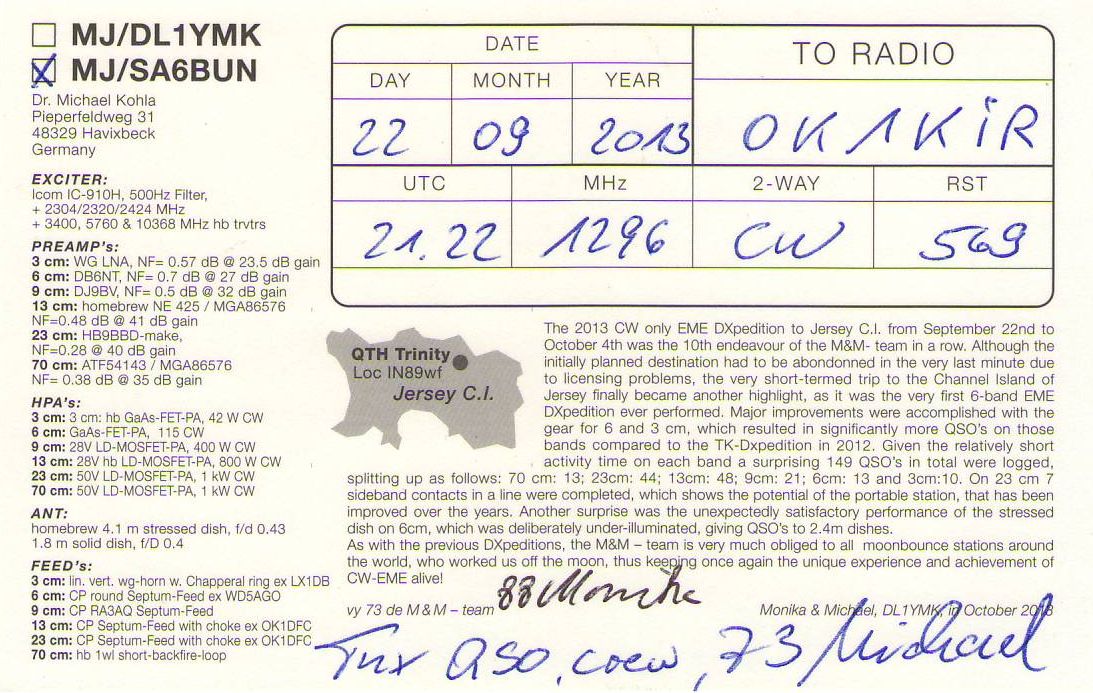 MJ/DL1YMK
MJ/SA6BUN
Dr. Michael Kohla
Pieperfeldweg 31
48329 Havixbeck
Germany
EXCITER:
Icom IC-910H, 500Hz Filter,
+ 2304/2320/2424 MHz
+ 3400, 5760 & 10368 MHz hb trvtrs
PREAMP's:
3 cm: WG LNA, NF= 0.57 dB @ 23.5 dB gain
6 cm: DB6NT, NF= 0.7 dB @ 27 dB gain
9 cm: DJ9BV, NF= 0.5 dB @ 32 dB gain
13 cm: homebrew NE 425 / MGA86576
NF=0.48 dB @ 41 dB gain
23 cm: HB9BBD-make,
NF=0.28 @ 40 dB gain
70 cm: ATF54143 / MGA86576
NF= 0.38 dB @ 35 dB gain
HPA's:
3 cm: 3 cm: hb GaAs-FET-PA, 42 W CW
6 cm: GaAs-FET-PA, 115 CW
9 cm: 28V LD-MOSFET-PA, 400 W CW
13 cm: 28V hb LD-MOSFET-PA, 800 W CW
23 cm: 50V LD-MOSFET-PA, 1 kW CW
70 cm: 50V LD-MOSFET-PA, 1 kW CW
ANT:
homebrew 4.1 m stressed dish, f/d 0.43
1.8 m solid dish, f/D 0.4
FEED's:
3 cm: lin. vert. wg-horn w. Chapperal ring ex LX1DB
6 cm: CP round Septum-Feed ex WD5AGO
9 cm: CP RA3AQ Septum-Feed
13 cm: CP Septum-Feed with choke ex OK1DFC
23 cm: CP Septum-Feed with choke ex OK1DFC
70 cm: hb 1wl short-backfire-loop
DATE
TO RADIO
DAY MONTH YEAR
22 09 2013 OK1KIR
UTC MHz 2-WAY RST
21.22 1296 CW 569
QTH Trinity
Loc IN89wf
Jersey C.I.
The 2013 CW only EME DXpedition to Jersey C.I. from September 22nd to
October 4th was the 10th endeavour of the M&M- team in a row. Although the
initially planned destination had to be abondonned in the very last minute due
to licensing problems, the very short-termed trip to the Channel Island of
Jersey finally became another highlight, as it was the very first 6-band EME
DXpedition ever performed. Major improvements were accomplished with the
gear for 6 and 3 cm, which resulted in significantly more QSO's on those
bands compared to the TK-Dxpedition in 2012. Given the relatively short
activity time on each band a surprising 149 QSO's in total were logged,
splitting up as follows: 70 cm: 13; 23cm: 44; 13cm: 48; 9cm: 21; 6cm: 13 and 3cm:10. On 23 cm 7
sideband contacts in a line were completed, which shows the potential of the portable station, that has been
improved over the years. Another surprise was the unexpectedly satisfactory performance of the stressed
dish on 6cm, which was deliberately under-illuminated, giving QSO's to 2.4m dishes.
As with the previous DXpeditions, the M&M – team is very much obliged to all moonbounce stations around
the world, who worked us off the moon, thus keeping once again the unique experience and achievement of
CW-EME alive!
vy 73 de M & M – team 88 Monika Monika & Michael, DL1YMK, in October 2013
Tnx QSO, crew, 73 Michael